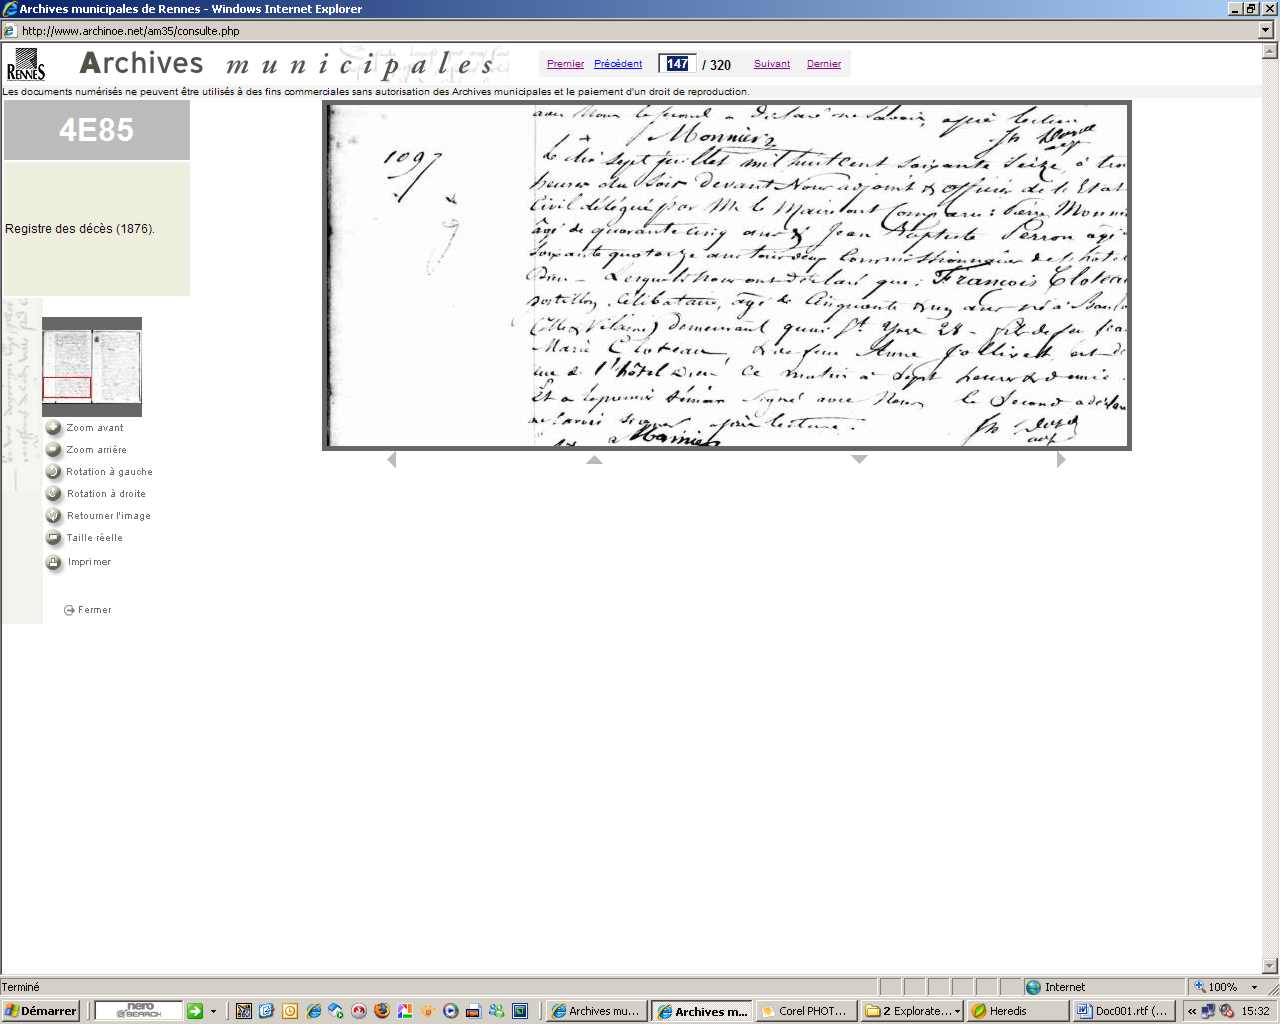 Archives municipales de Rennes - Windows Internet Explorer
http://www.archinoe.net/am35/consulte.php
RENNES
Archives municipales
Premier Précédent 147 / 320 Suivant Dernier
Les documents numérisés ne peuvent être utilisés à des fins commerciales sans autorisation des Archives municipales et le paiement d'un droit de reproduction.
4E85
Registre des décès (1876).
Zoom avant
Zoom arrière
Rotation à gauche
Rotation à droite
Retourner l'image
Taille réelle
Imprimer
Fermer
avec Nous le second a déclaré ne savoir, après lecture
Monnier
1097
Le dix sept juillet mil huit cent soixante seize, à tro
heures du soir devant Nous adjoint & officier de l'Etat
Civil délégué par M. le Maire ont Comparu : Pierre Monni
âgé de quarante cinq ans & Jean Baptiste Perron âgé
soixante quatorze ans tous deux Commissionnaires de l'hôtel
Dieu - Lesquels Nous ont déclaré que : François Cloteau
postillon, Célibataire, âgé de Cinquante & un ans né à
(Ille & Vilaine) demeurant quai St. Yves 28 - fils de feu
Marie Cloteau, & de feue Anne Jollivet, est dé
de l'hôtel Dieu Ce matin à sept heures & demie.
Et a le premier témoin signé avec Nous le Second a déclaré
ne savoir signer après lecture.
Monnier
Terminé
Internet
100%
Démarrer
nero
SEARCH
Archives mu...
Archives m...
Corel PHOT...
2 Explorate...
Heredis
Doc001.rtf (...
15:32